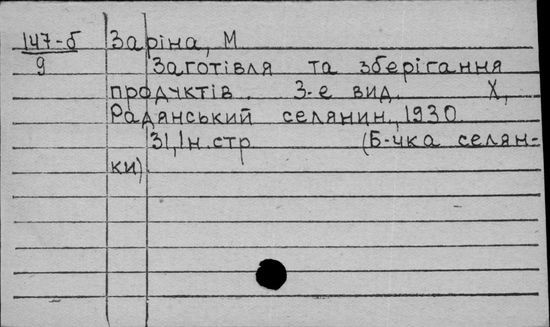 147-б Заріна, М
9 Заготівля та зберігання
продуктів. 3-е вид. Х,
Радянський селянин, 1930.
31, Ін. стр (Б-чка селян-
ки)